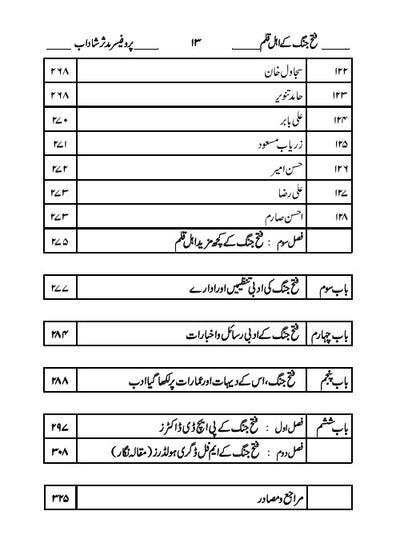 فتح جنگ کے اہل قلم ۱۳ پروفیسر مدثر شاداب
۱۲۲ سجاول خان ۲۶۸
۱۲۳ حامد تنویر ۲۶۸
۱۲۴ علی بابر ۲۷۰
۱۲۵ زریاب مسعود ۲۷۱
۱۲۶ حسن امیر ۲۷۲
۱۲۷ علی رضا ۲۷۳
۱۲۸ احسن صارم ۲۷۳
فصل سوم : فتح جنگ کے کچھ مزید اہل قلم ۲۷۵
باب سوم فتح جنگ کی ادبی تنظیمیں اور ادارے ۲۷۷
باب چہارم فتح جنگ کے ادبی رسائل و اخبارات ۲۸۴
باب پنجم فتح جنگ، اس کے دیہات اور عمارات پر لکھا گیا ادب ۲۸۸
باب ششم فصل اول : فتح جنگ کے پی ایچ ڈی ڈاکٹرز ۲۹۷
فصل دوم : فتح جنگ کے ایم فل ڈگری ہولڈرز (مقالہ نگار) ۳۰۸
مراجع و مصادر ۳۲۵